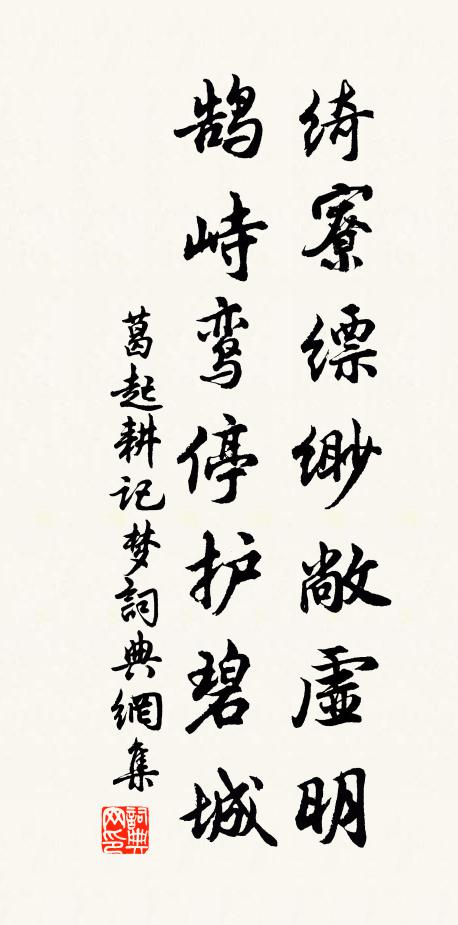 绮寮缥缈敞虚明
鹄峙鸾停护碧城
葛起耕记梦詞典網集
詞典网印